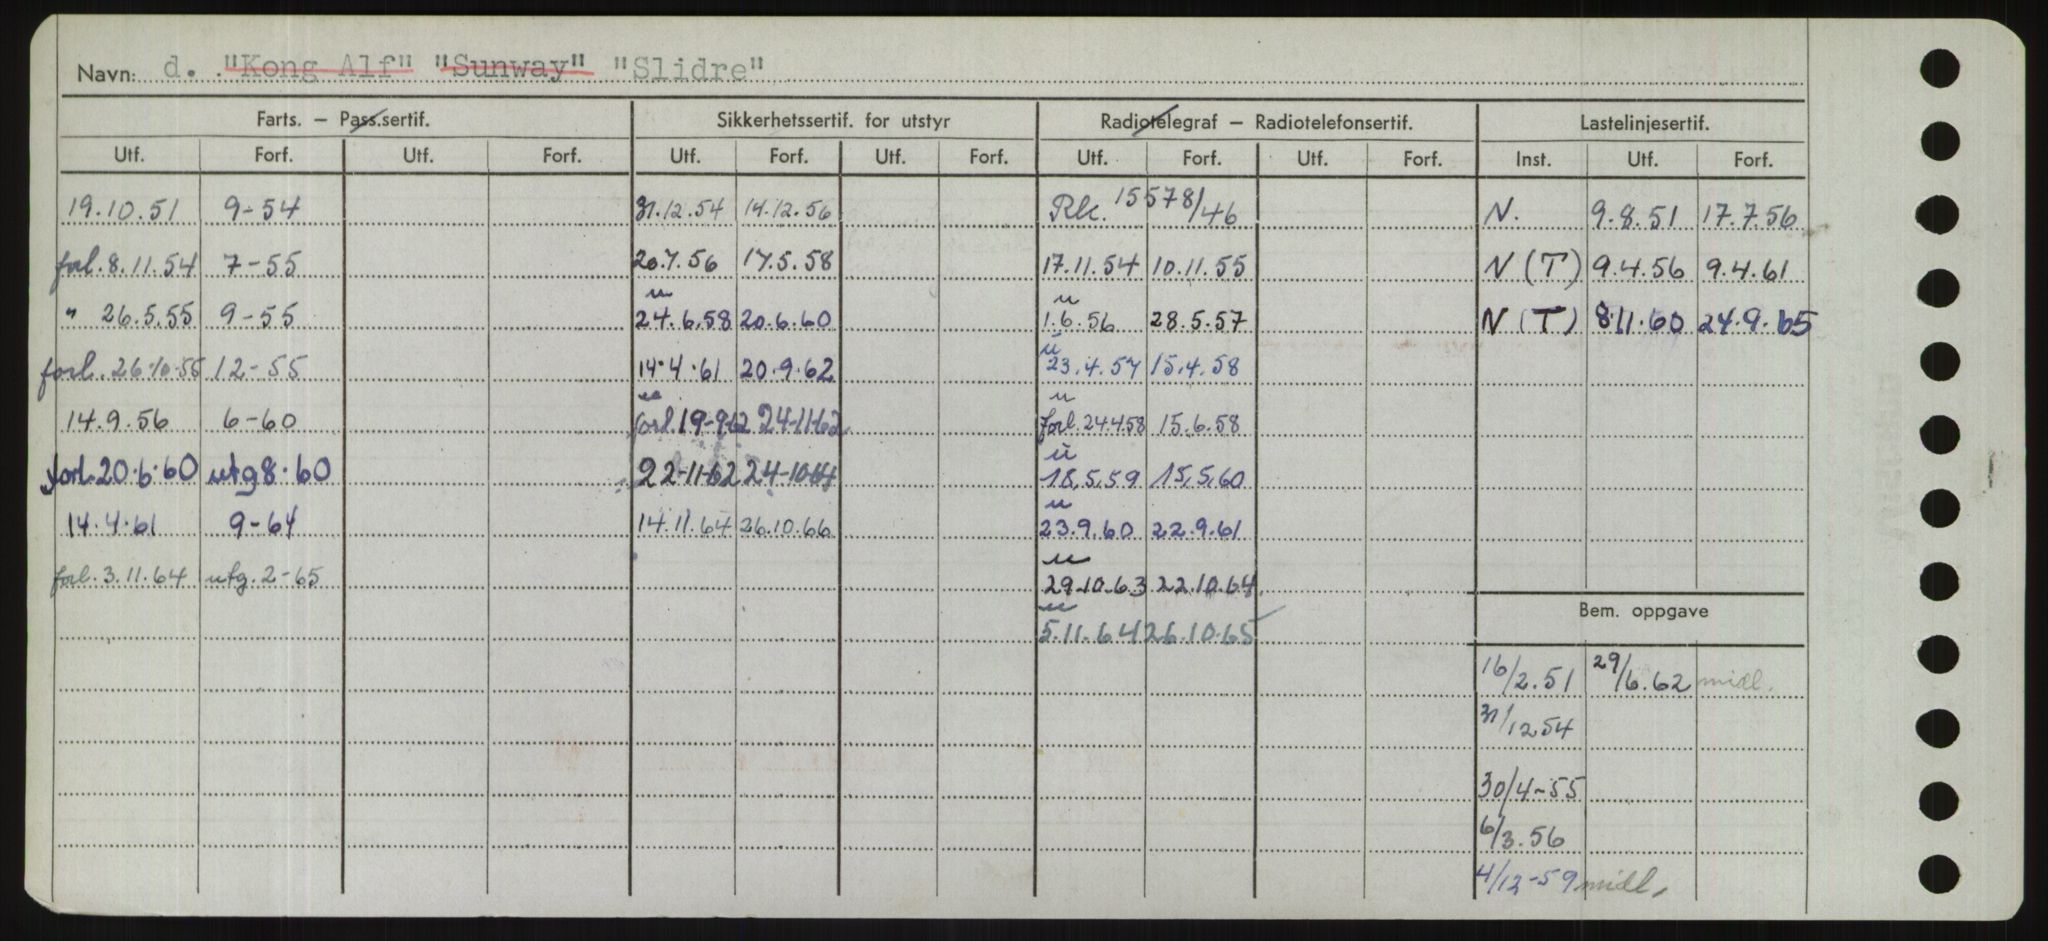 Navn: d. "Kong Alf" "Sunway" "Slidre"
Farts. – Pass.sertif. Sikkerhetssertif. for utstyr Radiotelegraf – Radiotelefonsertif. Lastelinjesertif.
Utf. Forf. Utf. Forf. Utf. Forf. Utf. Forf. Utf. Forf. Utf. Forf. Inst. Utf. Forf.
19.10.51 9-54 31.12.54 14.12.56 Rk. 15578/46 N. 9.8.51 17.7.56
forl. 8.11.54 7-55 20.7.56 17.5.58 17.11.54 10.11.55 N (T) 9.4.56 9.4.61
u u
" 26.5.55 9-55 24.6.58 20.6.60 1.6.56 28.5.57 N (T) 8.11.60 24.9.65
u
forl. 26.10.55 12-55 14.4.61 20.9.62 23.4.57 15.4.58
u
14.9.56 6-60 forl. 19-9-62 24-11-62 forl. 24.4.58 15.6.58
u
forl. 20.6.60 utg 8.60 22-11-62 24-10-64 18.5.59 15.5.60
u
14.4.61 9-64 14.11.64 26.10.66 23.9.60 22.9.61
u
forl. 3.11.64 utg. 2-65 29.10.63 22.10.64
u
Bem. oppgave
5.11.64 26.10.65
16/2.51 29/6.62 midl.
31/12 54
30/4-55
6/3.56
4/12-59 midl.